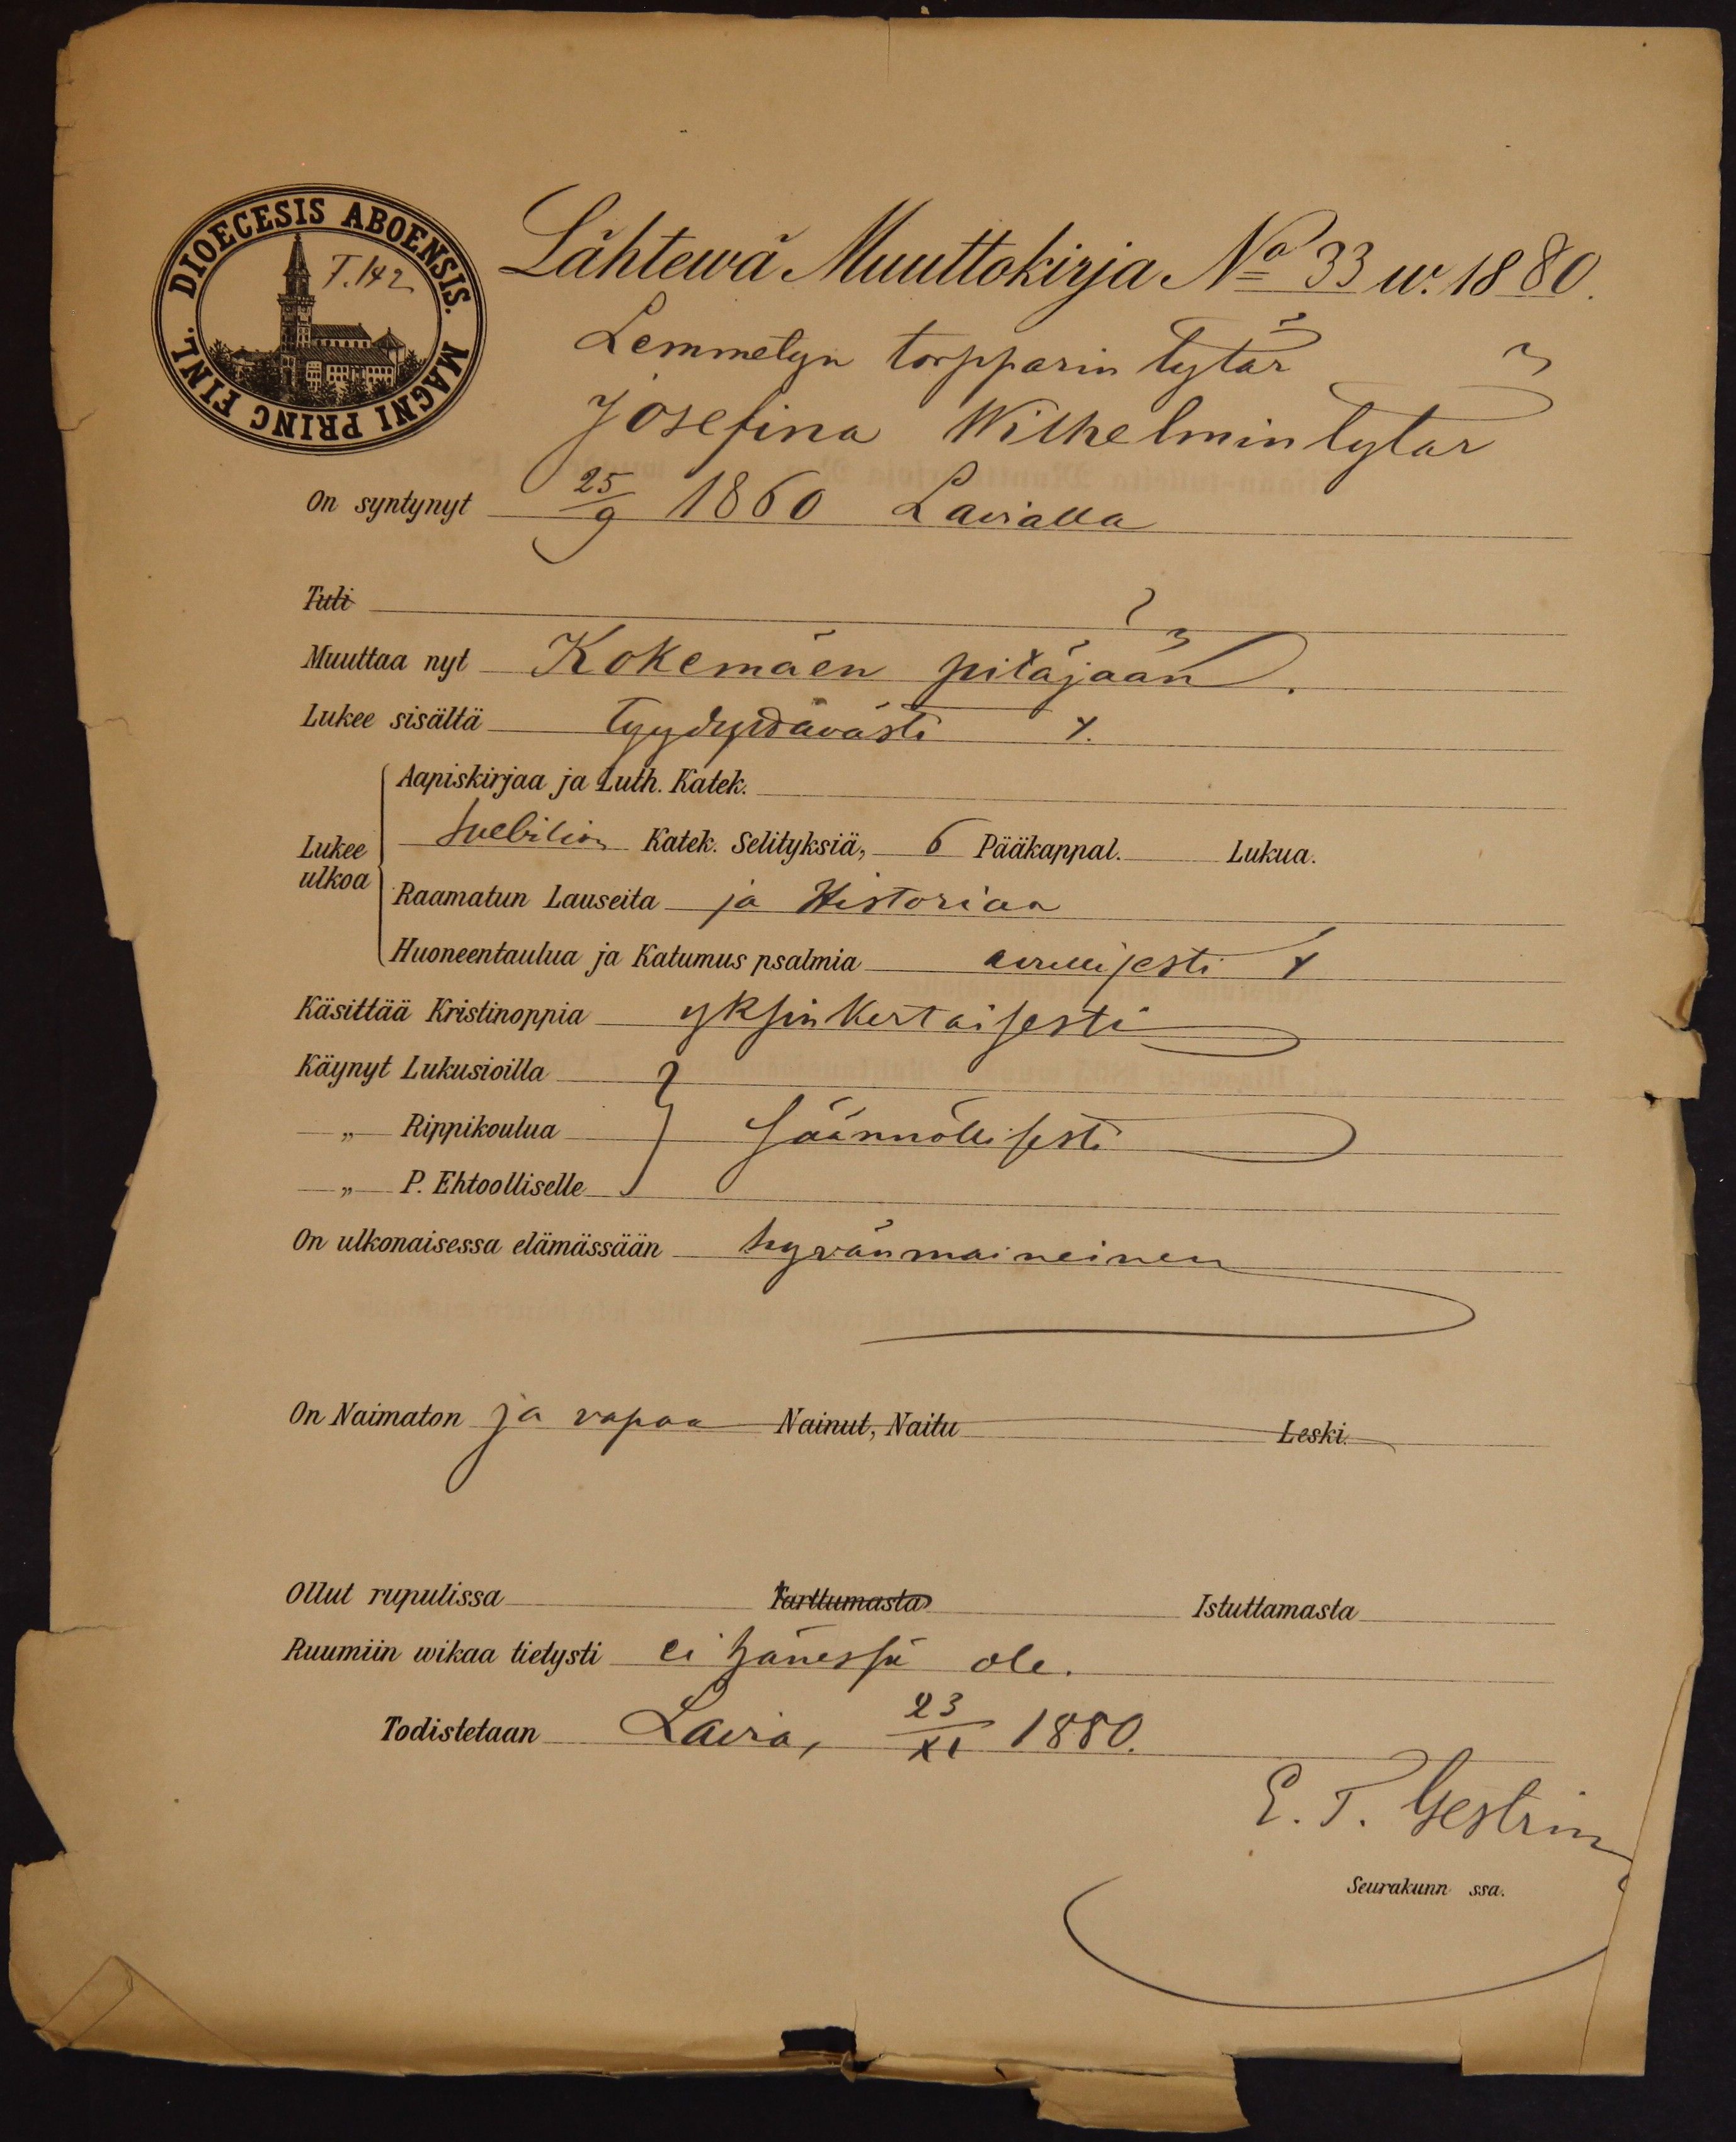 DIOECESIS ABOENSIS. MAGNI PRINC FINL.
T.142
Lähtewä Muuttokirja No 33 w. 1880.
Lemmetyn torpparin tytär
Josefina Wilhelmintytär
On syntynyt 25/9 1860 Lavialla
Tuli
Muuttaa nyt Kokemäen pitäjään.
Lukee sisältä tyydyttävästi
Aapiskirjaa ja Luth. Katek.
Lukee ulkoa
Svebilion Katek. Selityksiä, 6 Pääkappal. Lukua.
Raamatun Lauseita ja Historiaa
Huoneentaulua ja Katumus psalmia
Käsittää Kristinoppia yksinkertaisesti
Käynyt Lukusioilla
„ Rippikoulua säännöllisesti
„ P. Ehtoolliselle
On ulkonaisessa elämässään hyvänmaineinen
On Naimaton ja vapaa Nainut, Naitu Leski.
Ollut rupulissa Tarttumasta Istuttamasta
Ruumiin wikaa tietysti ei hänessä ole.
Todistetaan Lavia, 23/XI 1880.
E. T. Gestrin
Seurakunn ssa.